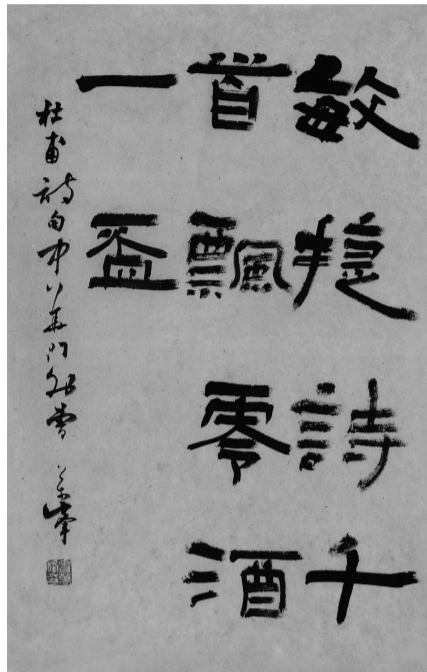 敏捷詩千
首飄零酒
一盃
杜甫詩句